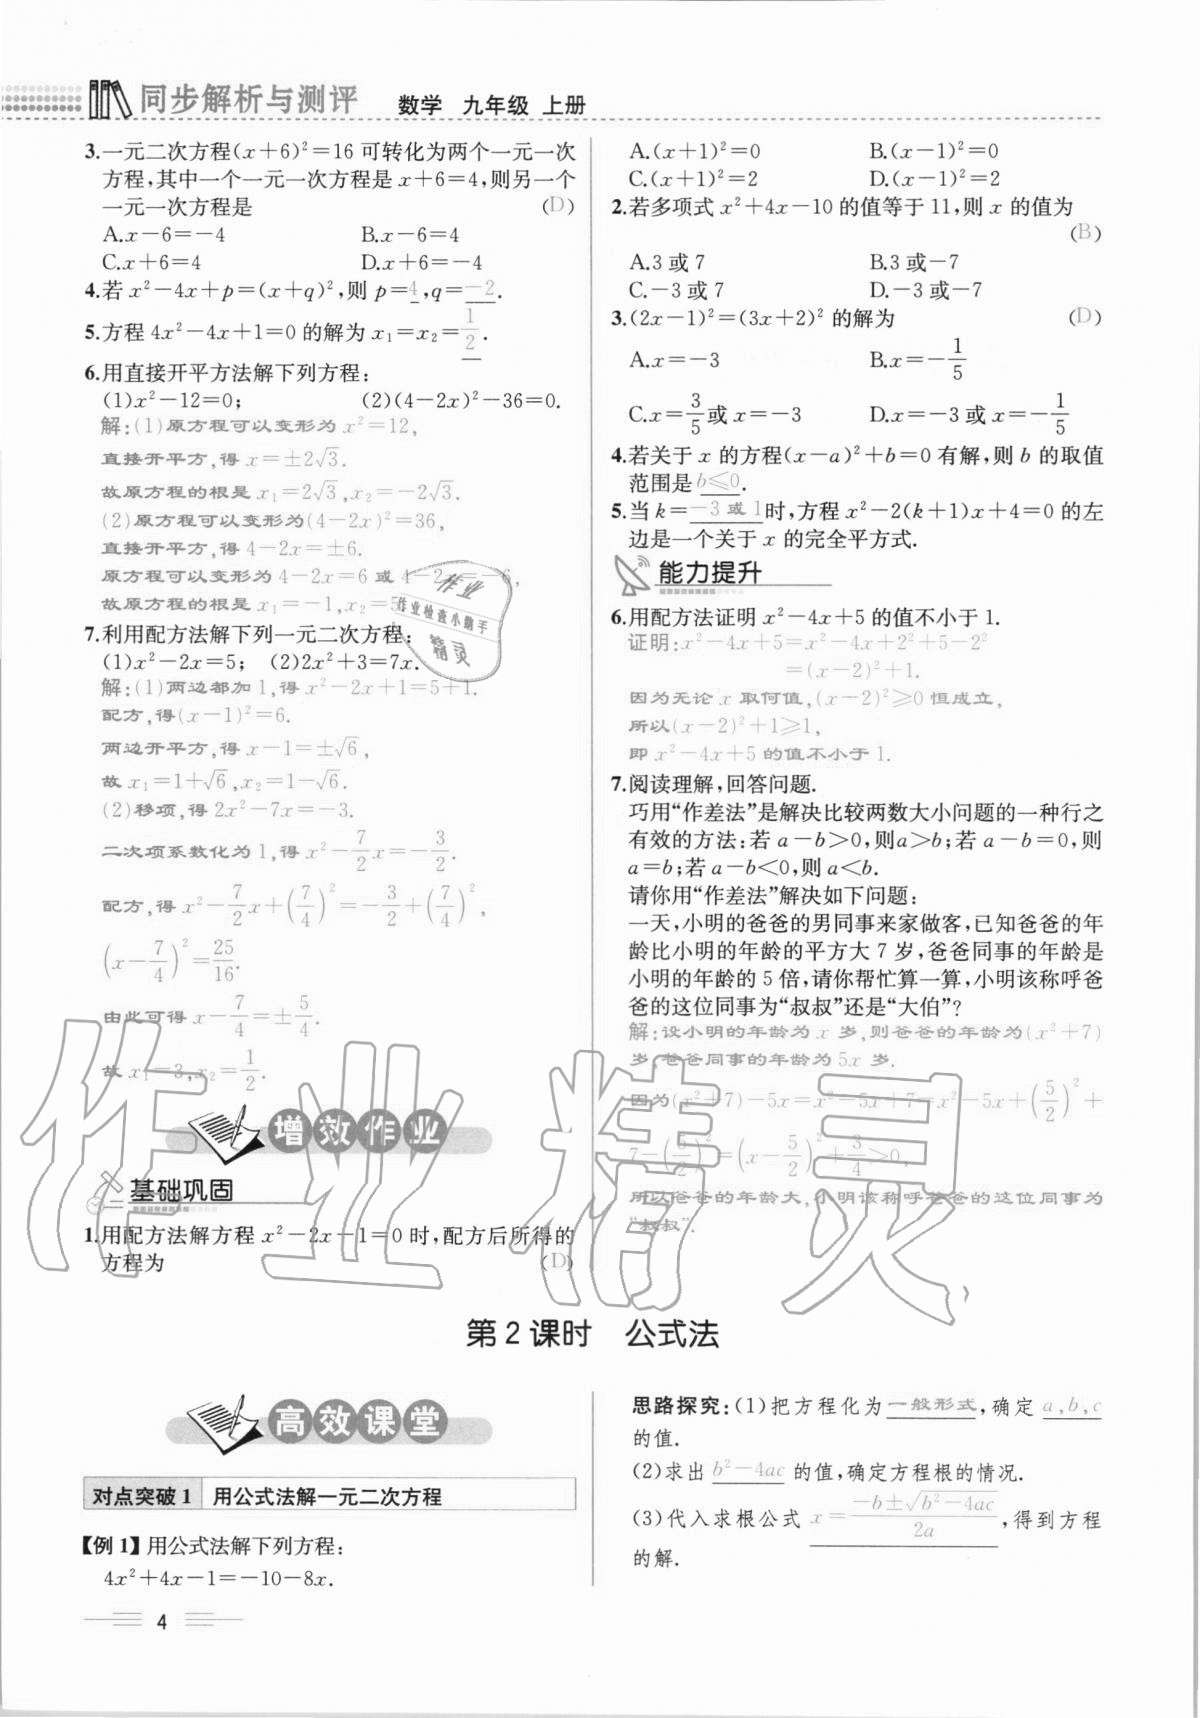 同步解析与测评 数学 九年级 上册
3.一元二次方程(x+6)²=16 可转化为两个一元一次
方程,其中一个一元一次方程是 x+6=4,则另一个
一元一次方程是 (D)
A.x-6=-4 B.x-6=4
C.x+6=4 D.x+6=-4
4.若 x²-4x+p=(x+q)²,则 p=4,q=-2.
5.方程 4x²-4x+1=0 的解为 x₁=x₂=1/2.
6.用直接开平方法解下列方程:
(1)x²-12=0; (2)(4-2x)²-36=0.
解:(1)原方程可以变形为 x²=12,
直接开平方,得 x=±2√3.
故原方程的根是 x₁=2√3,x₂=-2√3.
(2)原方程可以变形为(4-2x)²=36,
直接开平方,得 4-2x=±6.
原方程可以变形为 4-2x=6 或 4-2x=-6,
故原方程的根是 x₁=-1,x₂=5
7.利用配方法解下列一元二次方程:
(1)x²-2x=5; (2)2x²+3=7x.
解:(1)两边都加 1,得 x²-2x+1=5+1.
配方,得(x-1)²=6.
两边开平方,得 x-1=±√6,
故 x₁=1+√6,x₂=1-√6.
(2)移项,得 2x²-7x=-3.
二次项系数化为 1,得 x²-7/2x=-3/2.
配方,得 x²-7/2x+(7/4)²=-3/2+(7/4)²,
(x-7/4)²=25/16.
由此可得 x-7/4=±5/4.
故 x₁=3,x₂=1/2.
增效作业
基础巩固
1.用配方法解方程 x²-2x-1=0 时,配方后所得的
方程为 (D)
A.(x+1)²=0 B.(x-1)²=0
C.(x+1)²=2 D.(x-1)²=2
2.若多项式 x²+4x-10 的值等于 11,则 x 的值为
(B)
A.3 或 7 B.3 或-7
C.-3 或 7 D.-3 或-7
3.(2x-1)²=(3x+2)² 的解为 (D)
A.x=-3 B.x=-1/5
C.x=3/5或 x=-3 D.x=-3 或 x=-1/5
4.若关于 x 的方程(x-a)²+b=0 有解,则 b 的取值
范围是 b≤0.
5.当 k=-3 或 1时,方程 x²-2(k+1)x+4=0 的左
边是一个关于 x 的完全平方式.
能力提升
6.用配方法证明 x²-4x+5 的值不小于 1.
证明:x²-4x+5=x²-4x+2²+5-2²
=(x-2)²+1.
因为无论 x 取何值,(x-2)²≥0 恒成立,
所以(x-2)²+1≥1,
即 x²-4x+5 的值不小于 1.
7.阅读理解,回答问题.
巧用“作差法”是解决比较两数大小问题的一种行之
有效的方法:若 a-b>0,则a>b;若 a-b=0,则
a=b;若 a-b<0,则 a<b.
请你用“作差法”解决如下问题:
一天,小明的爸爸的男同事来家做客,已知爸爸的年
龄比小明的年龄的平方大 7 岁,爸爸同事的年龄是
小明的年龄的 5 倍,请你帮忙算一算,小明该称呼爸
爸的这位同事为“叔叔”还是“大伯”?
解:设小明的年龄为 x 岁,则爸爸的年龄为(x²+7)
岁,爸爸同事的年龄为 5x 岁.
因为(x²+7)-5x=x²-5x+7=x²-5x+(5/2)²+
7-(5/2)²=(x-5/2)²+3/4>0,
所以爸爸的年龄大,小明该称呼爸爸的这位同事为
“叔叔”.
作业
作业检查小帮手
精灵
作业精灵
第 2 课时 公式法
高效课堂
对点突破 1 用公式法解一元二次方程
【例 1】用公式法解下列方程:
4x²+4x-1=-10-8x.
思路探究:(1)把方程化为一般形式,确定 a,b,c
的值.
(2)求出 b²-4ac 的值,确定方程根的情况.
(3)代入求根公式 x=(-b±√(b²-4ac))/2a,得到方程
的解.
4